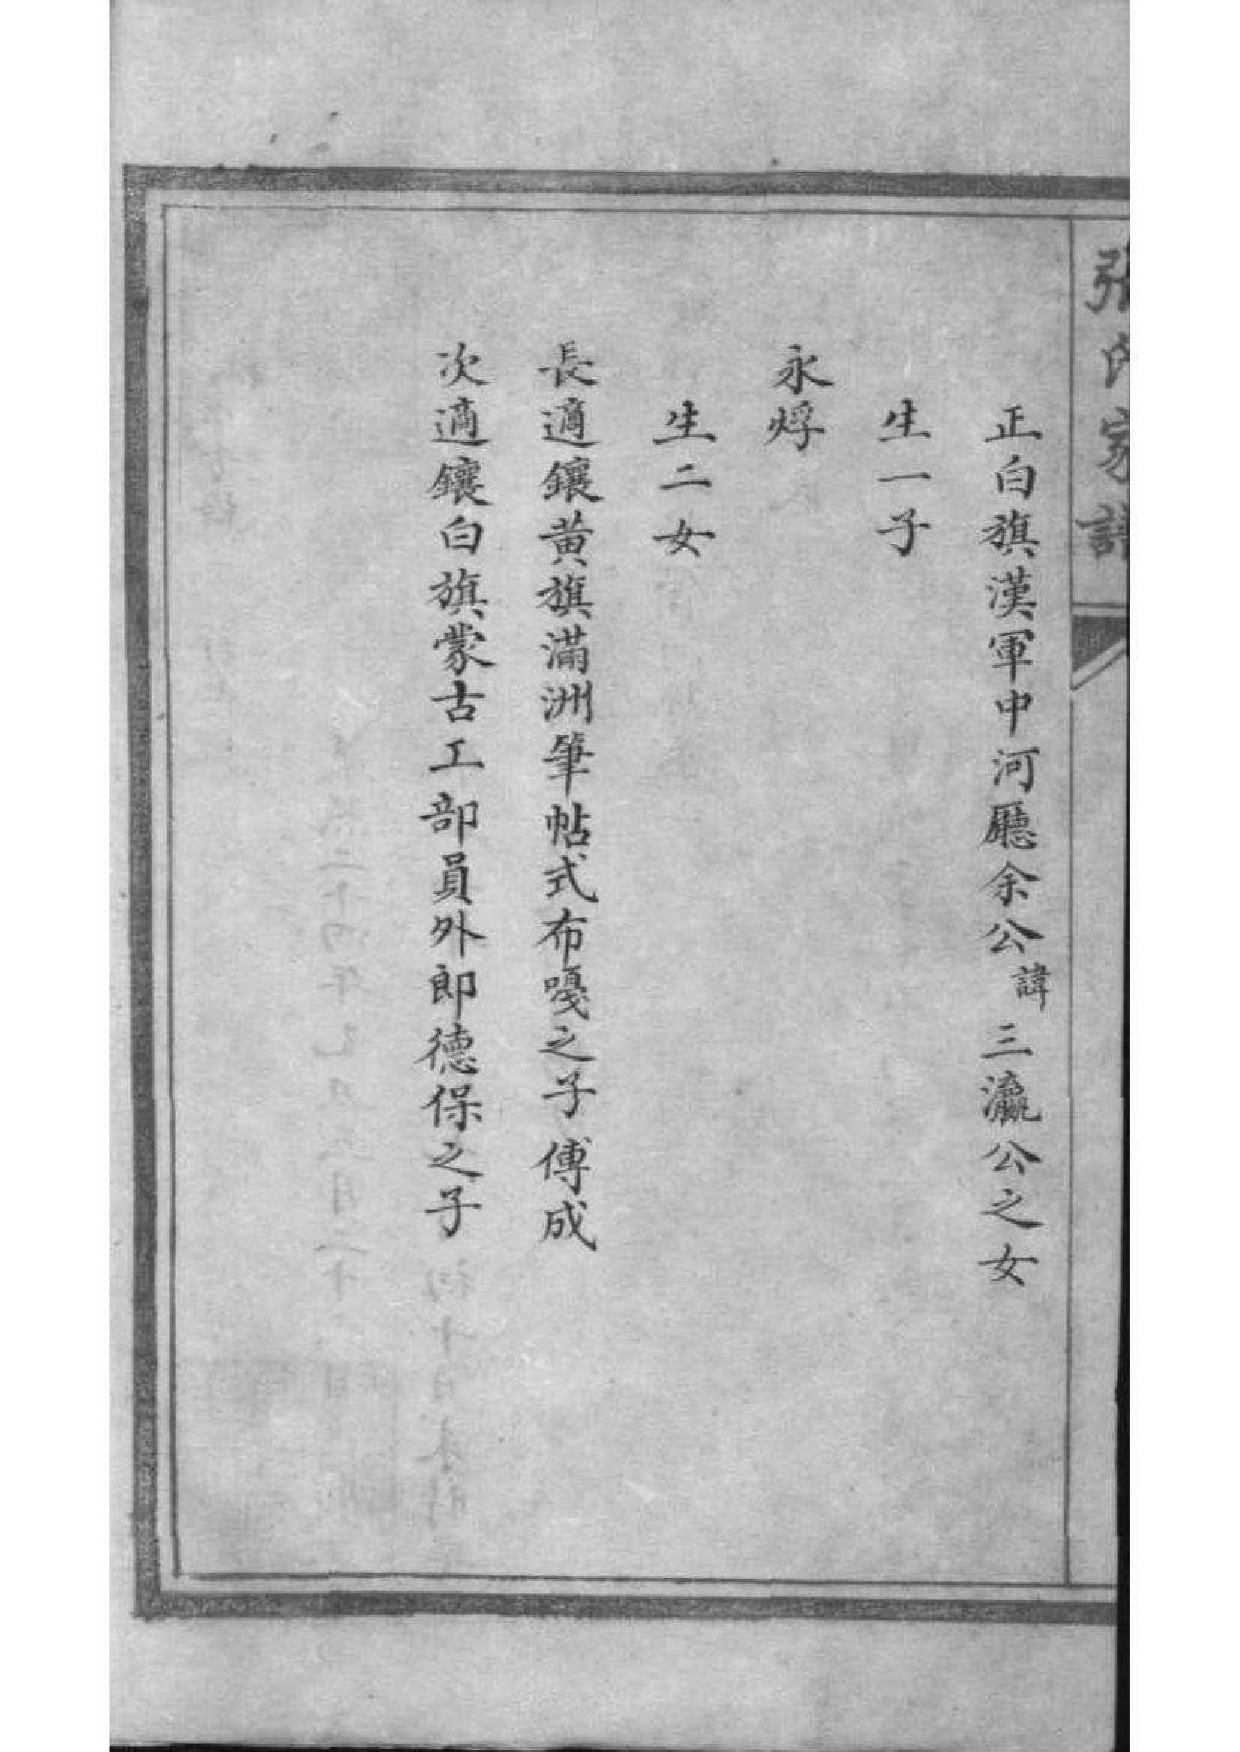 張氏家譜
正白旗漢軍中河廳余公諱三瀛公之女
生一子
永烰
生二女
長適鑲黄旗滿洲筆帖式布嘎之子傅成
次適鑲白旗蒙古工部員外郎德保之子